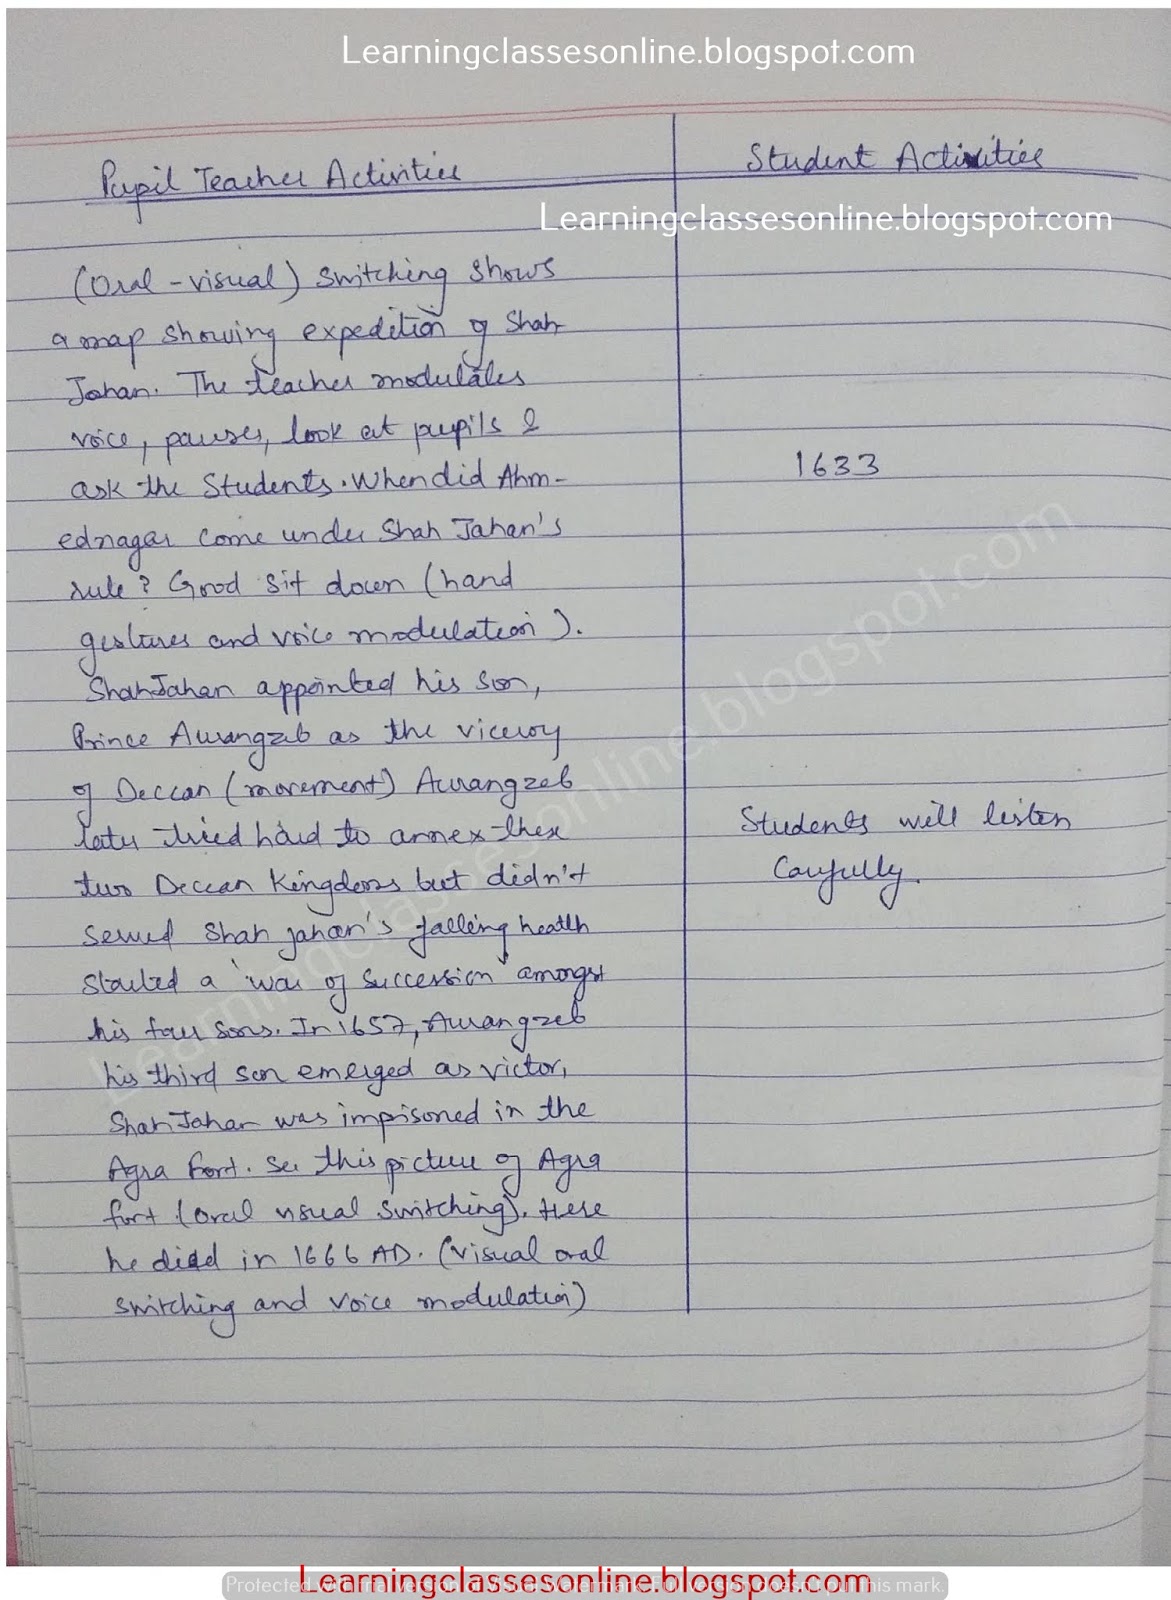 Learningclassesonline.blogspot.com
Pupil Teacher Activities
Student Activities
Learningclassesonline.blogspot.com
(Oral - visual) switching shows
a map showing expedition of Shah
Jahan. The teacher modulates
voice, pauses, look at pupils &
ask the Students. When did Ahm-
ednagar come under Shah Jahan's
rule? Good sit down (hand
gestures and voice modulation).
ShahJahan appointed his son,
Prince Aurangzeb as the viceroy
of Deccan (movement) Aurangzeb
later tried hard to annex these
two Deccan Kingdoms but didn't
Shah jahan's falling health
started a 'war of succession' amongst
his four sons. In 1657, Aurangzeb
his third son emerged as victor,
ShahJahan was imprisoned in the
Agra Fort. See this picture of Agra
fort (oral visual switching). Here
he died in 1666 AD. (visual oral
switching and voice modulation)
1633
Students will listen
Carefully.
Learningclassesonline.blogspot.com
Learningclassesonline.blogspot.com
Protected with trial version of Visual Watermark. Full version doesn't put this mark.